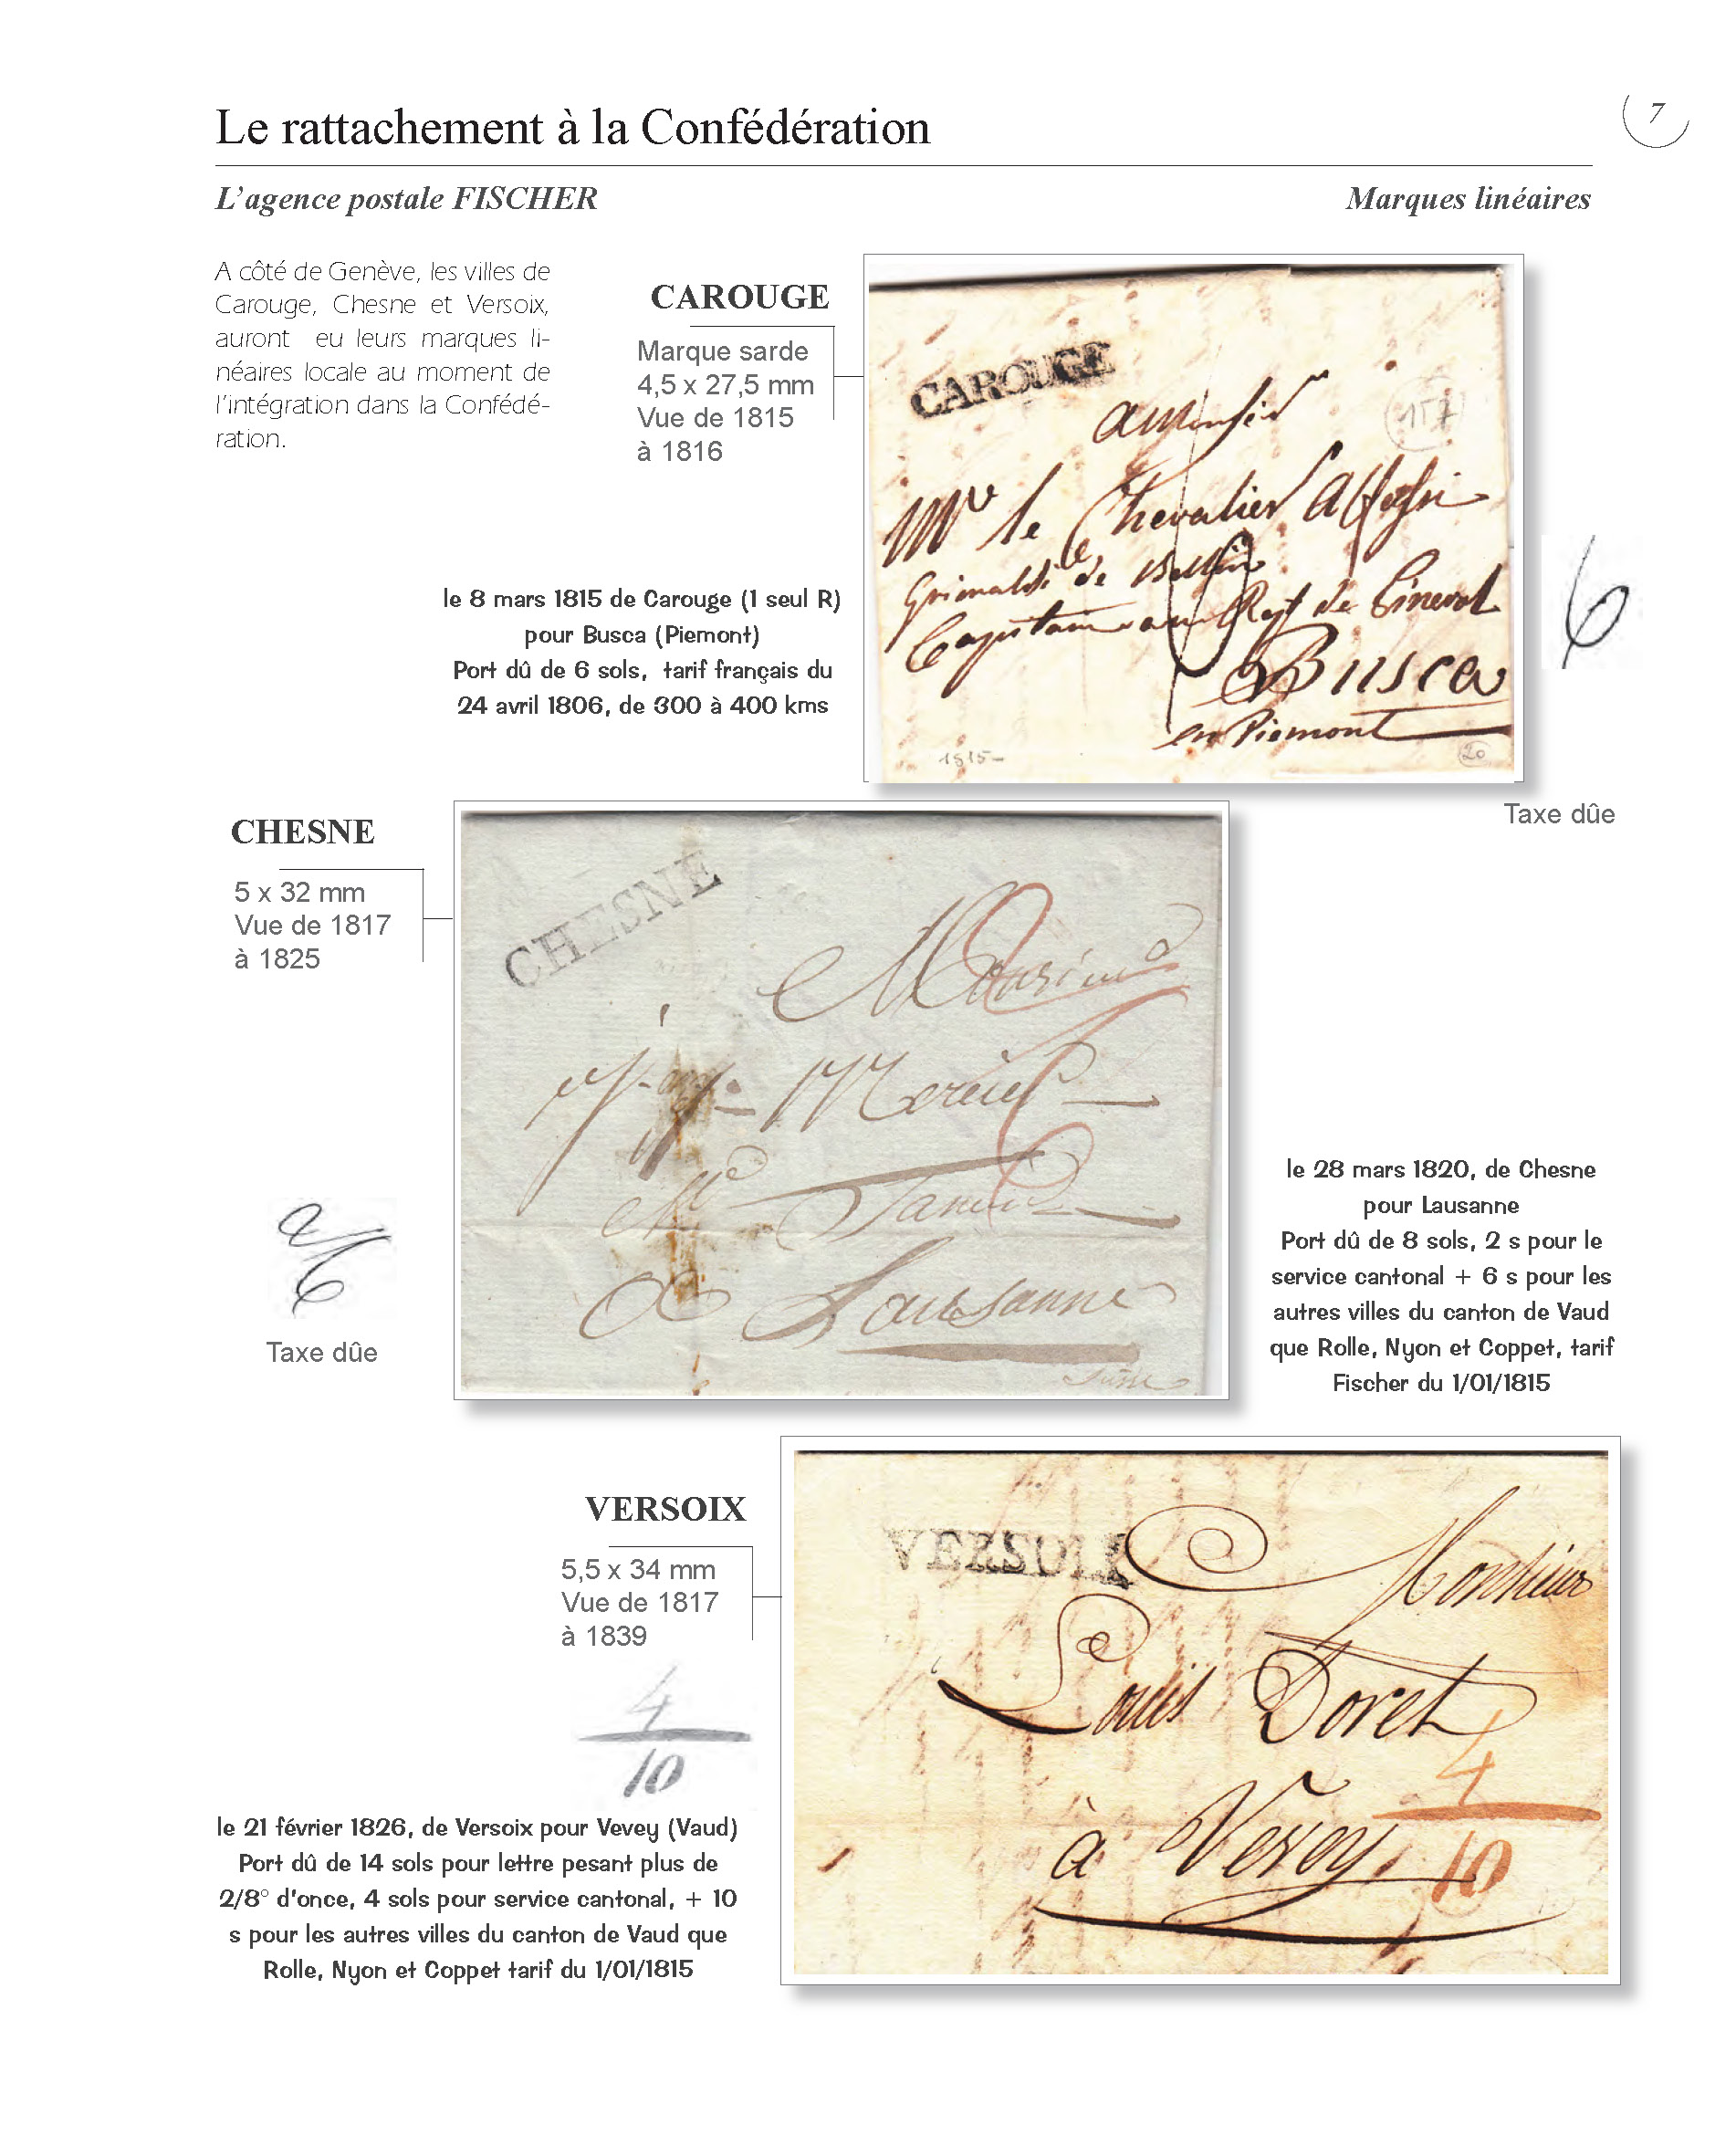 Le rattachement à la Confédération
7
L'agence postale FISCHER
Marques linéaires
A côté de Genève, les villes de
Carouge, Chesne et Versoix,
auront eu leurs marques li-
néaires locale au moment de
l'intégration dans la Confédé-
ration.
CAROUGE
Marque sarde
4,5 x 27,5 mm
Vue de 1815
à 1816
le 8 mars 1815 de Carouge (1 seul R)
pour Busca (Piemont)
Port dû de 6 sols, tarif français du
24 avril 1806, de 300 à 400 kms
CAROUGE
157
Mr le Chevalier
Grimaldi de
Capitaine au Regt de Pinerol
Busca
en Piemont
1815-
20
6
Taxe dûe
CHESNE
5 x 32 mm
Vue de 1817
à 1825
CHESNE
Mercier
à Lausanne
2
6
Taxe dûe
le 28 mars 1820, de Chesne
pour Lausanne
Port dû de 8 sols, 2 s pour le
service cantonal + 6 s pour les
autres villes du canton de Vaud
que Rolle, Nyon et Coppet, tarif
Fischer du 1/01/1815
VERSOIX
5,5 x 34 mm
Vue de 1817
à 1839
4
10
le 21 février 1826, de Versoix pour Vevey (Vaud)
Port dû de 14 sols pour lettre pesant plus de
2/8° d'once, 4 sols pour service cantonal, + 10
s pour les autres villes du canton de Vaud que
Rolle, Nyon et Coppet tarif du 1/01/1815
VERSOIX
Monsieur
Louis Doret
à Vevey
4
10